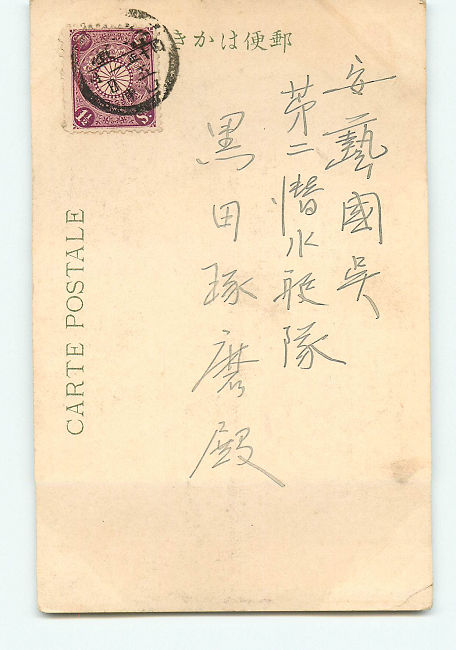 郵便はかき
安藝國呉
第二潜水艇隊
黒田琢磨殿
CARTE POSTALE
1½ Sn